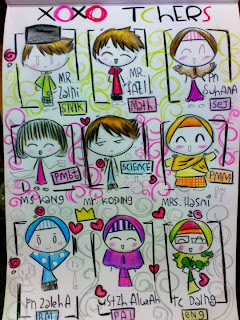 XOXO TCHERS
MR. Zaini
SIVIK
MR.
Math
Pn Suhana
SEJ
Ms Yang
PMBT
Mr Koping
SCIENCE
MRS. Hasni
PMM
Pn ZalehA
BM
Stzh Aluyah
PAI
Tc Daing
eng